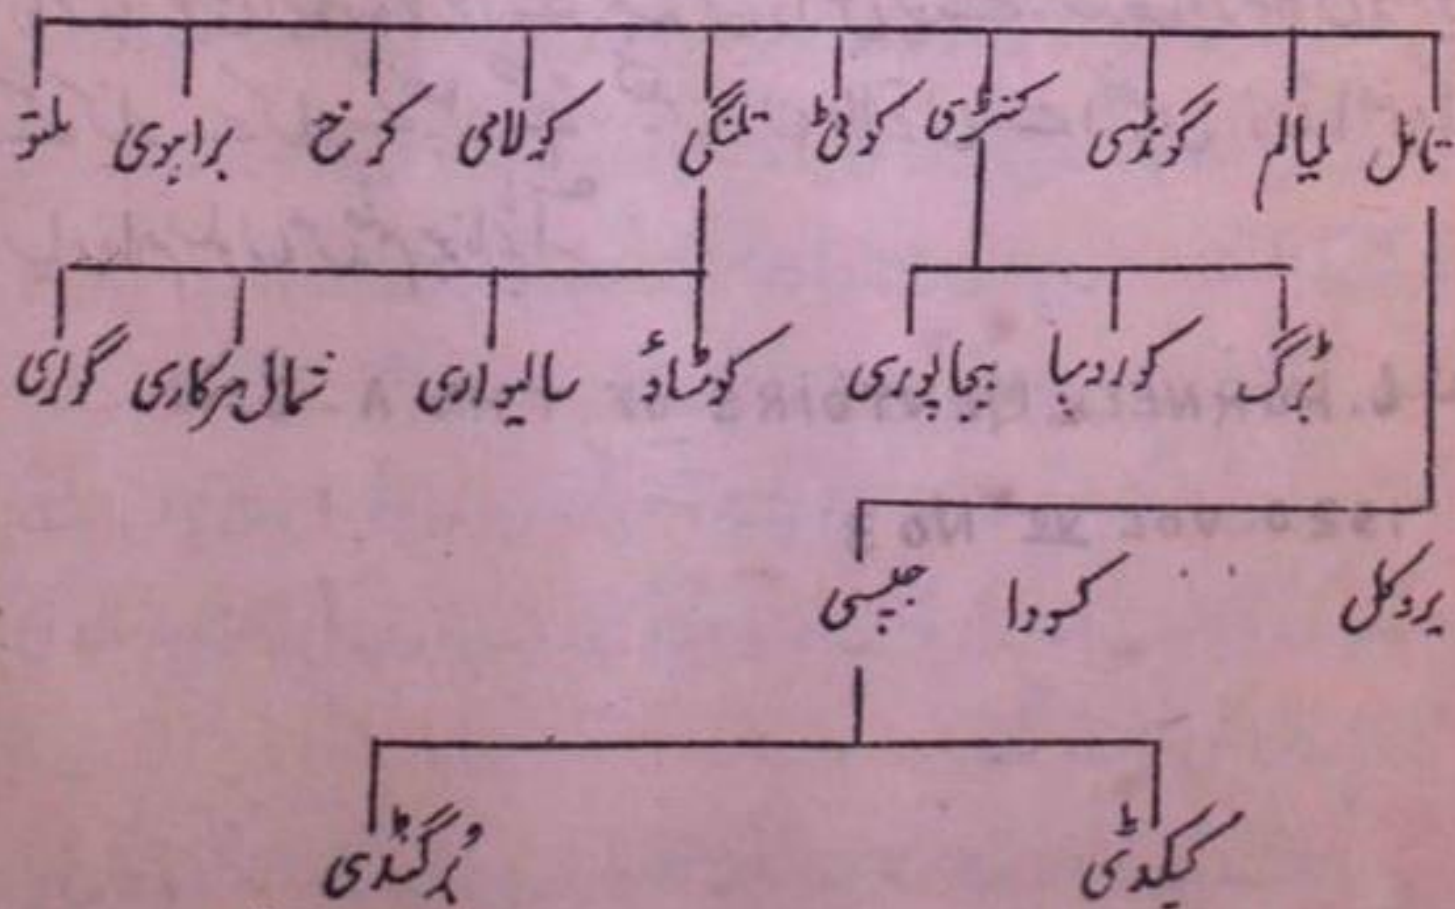 تامل ملیالم گونڈی کنڑی کوئی تلنگی کولامی کرخ براہوی ملتو
بڑگ کوردبا بیجاپوری کوٹماؤ سالیواری گولری
یردکل کسودا جپسی
کیکڈی بُرگنڈی